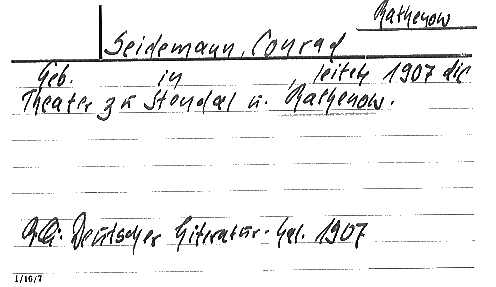 Rathenow
Seidemann, Conrad
Geb. in , leitete 1907 die
Theater zu Stendal u. Rathenow.
Deutscher Literatur-Kal. 1907
1/16/7